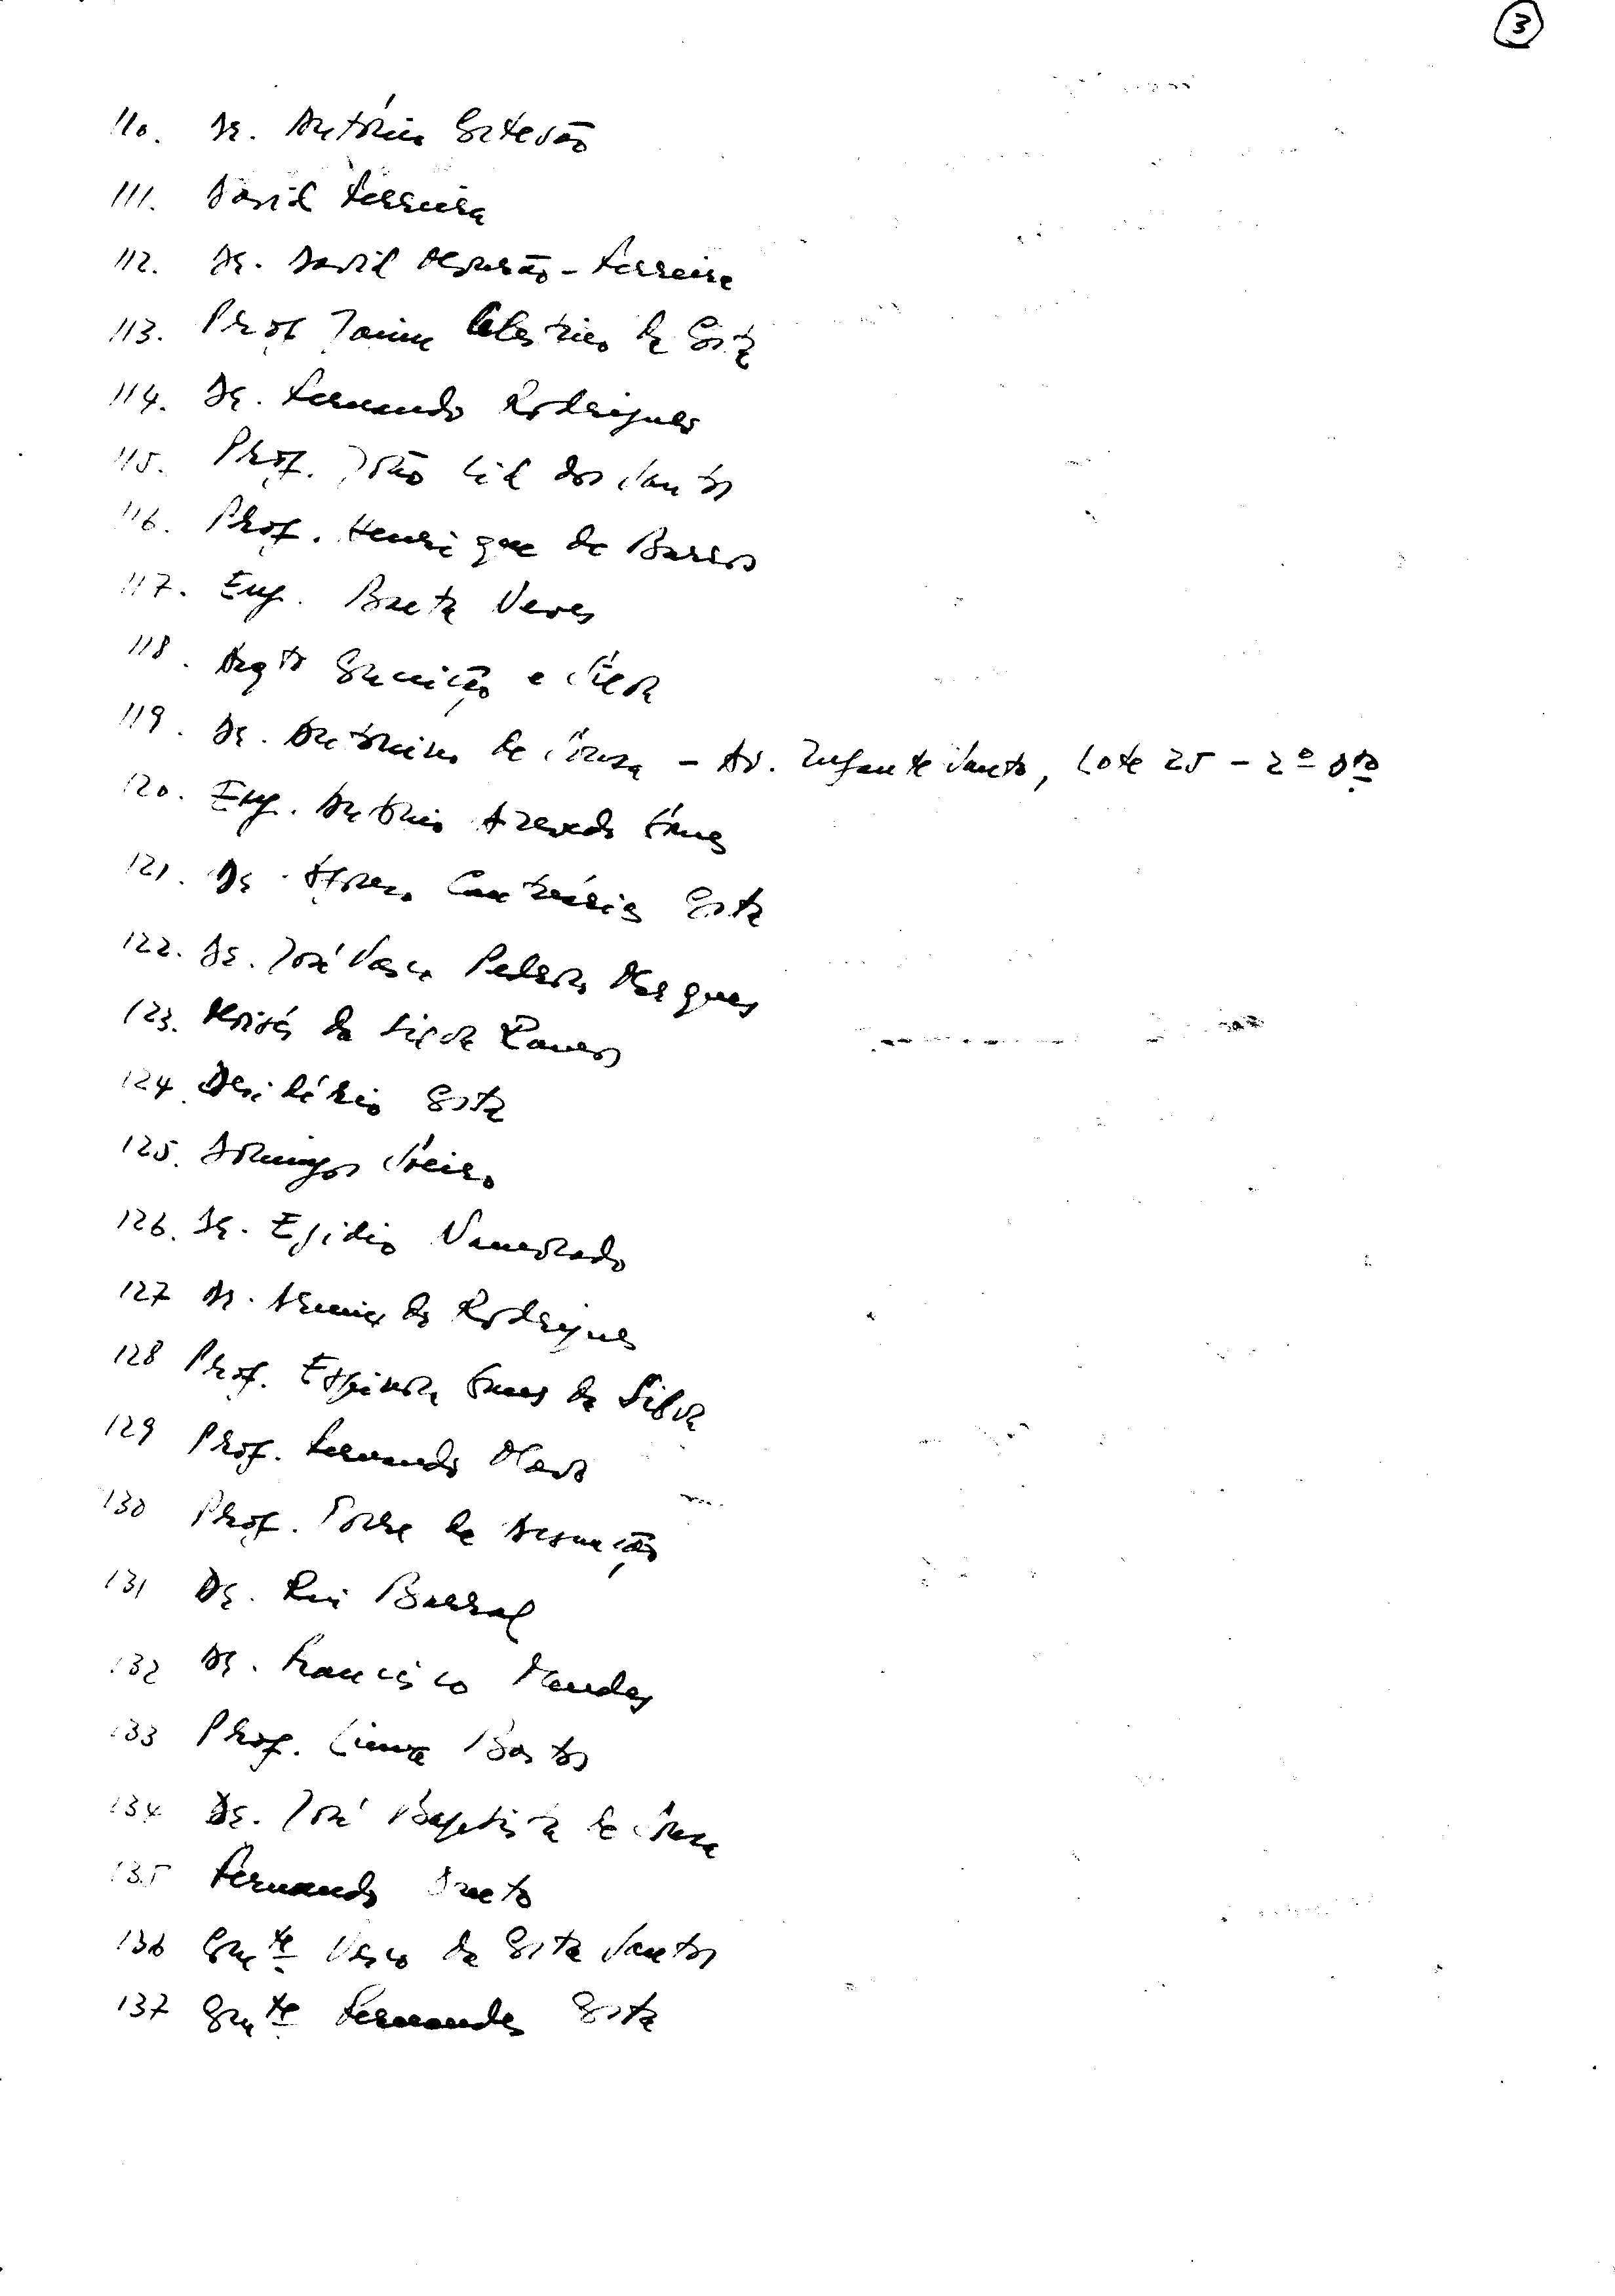 3
110. Dr. António Estevão
111. David Ferreira
112. Dr. David Mourão-Ferreira
113. Prof Jaime Celestino da Costa
114. Dr. Fernando Rodrigues
115. Prof. João Cid dos Santos
116. Prof. Henrique de Barros
117. Eng. Baeta Neves
118. Arqto Conceição e Silva
119. Dr. Antonino de Sousa - Av. Infante Santo, Lote 25 - 2º Dto
120. Eng. António Azevedo Gomes
121. Dr. Cantário Costa
122. Dr. José Vasco Pedroso Marques
123. Moisés da Silva Ramos
124. Desidério Costa
125. Domingos
126. Dr. Egídio Namorado
127 Dr. Armindo Rodrigues
128 Prof. Gomes da Silva
129 Prof. Fernando
130 Prof. Torre de Assunção
131 Dr. Rui Barral
132 Dr. Francisco Mendes
133 Prof. Lima Bastos
134 Dr. José Baptista de Sousa
135 Fernando
136 Cmte Vasco da Costa Santos
137 Cmte Fernandes Costa